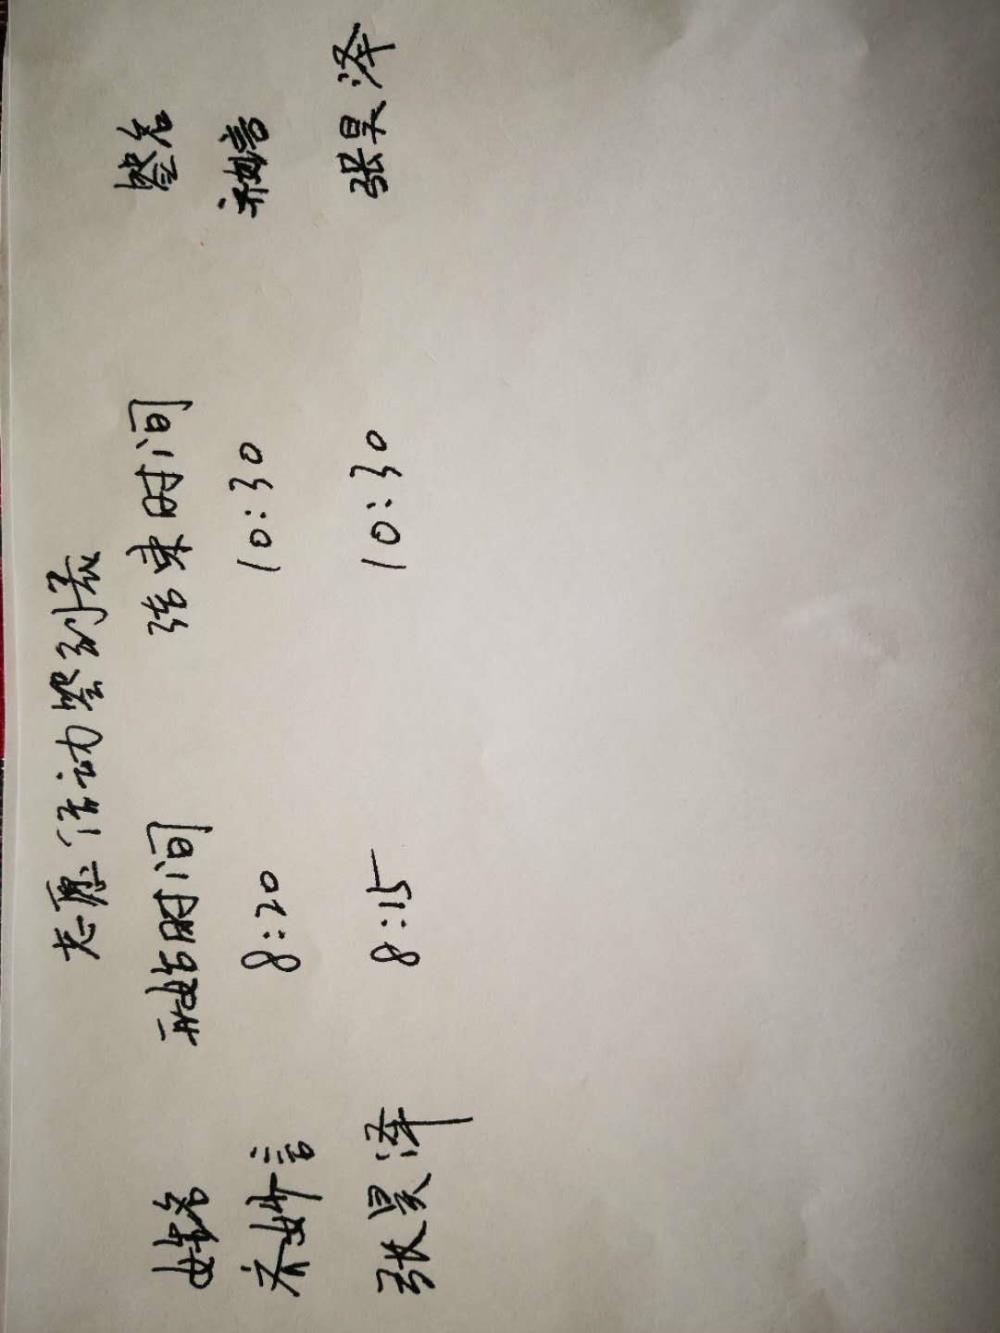 志愿活动签到表
姓名 开始时间 结束时间 签名
乔妙言 8:20 10:30 乔妙言
张昊泽 8:15 10:30 张昊泽